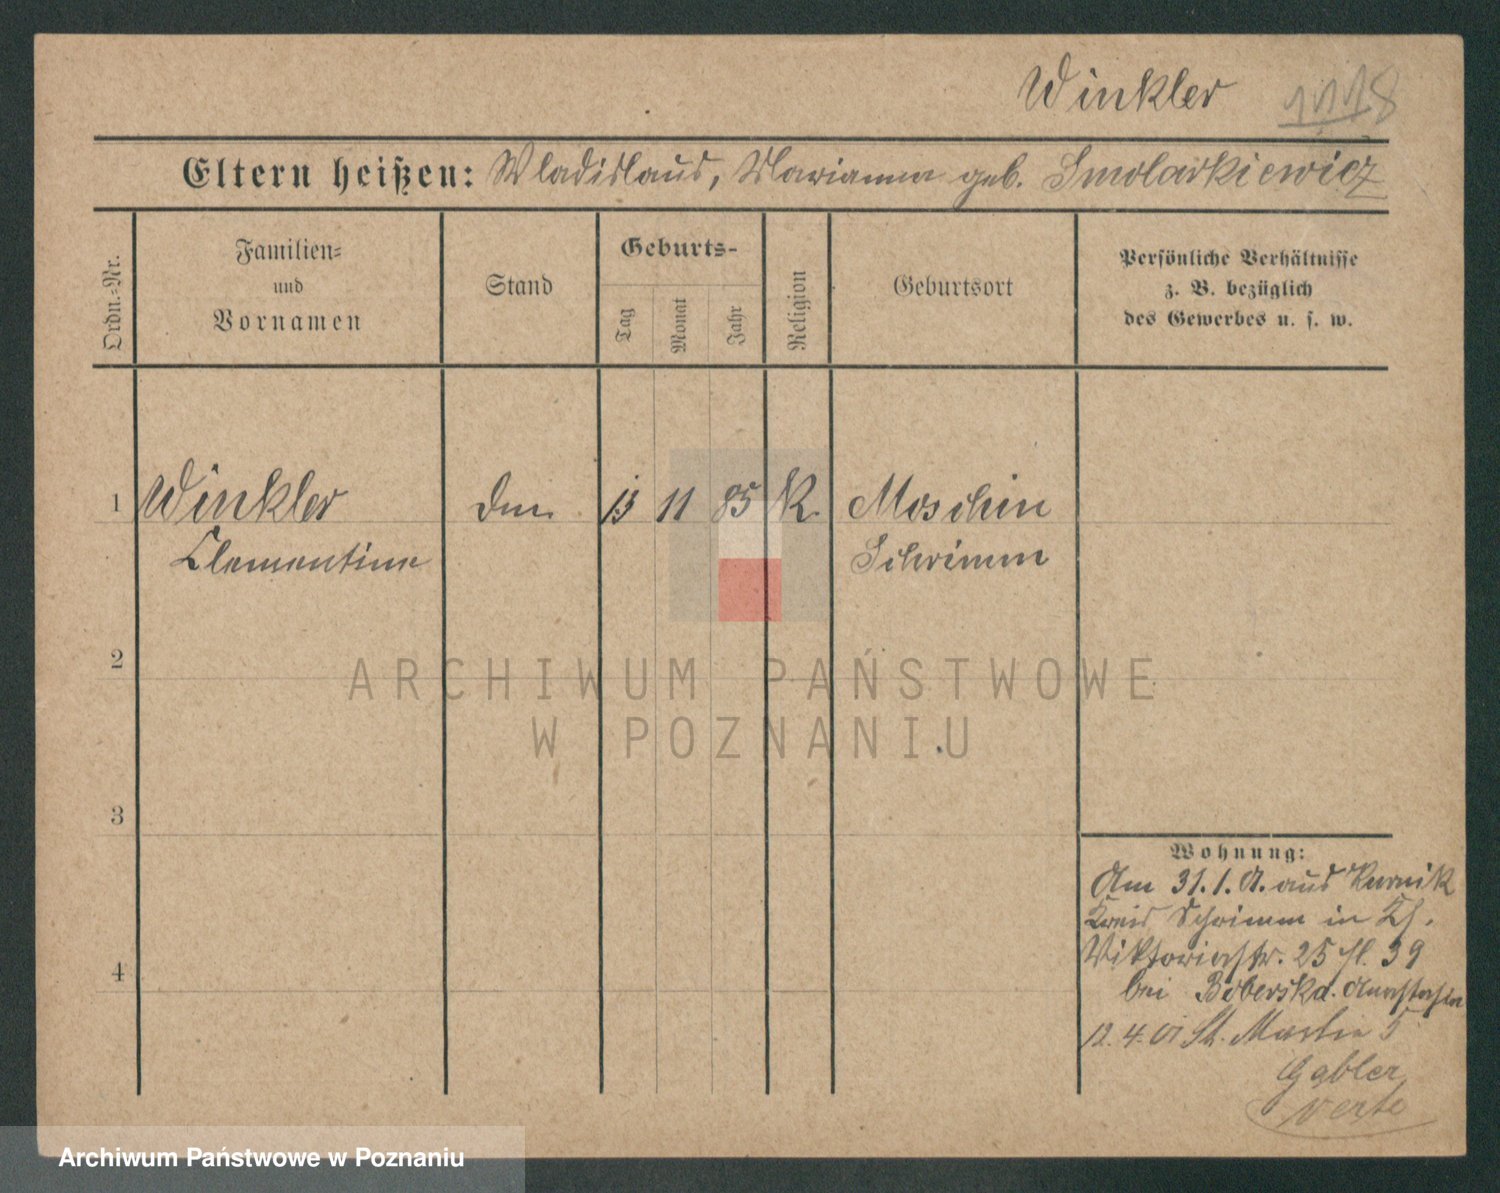 Winkler 1118
Eltern heißen: Wladislaus, Marianna geb. Smolarkiewicz
Ordn.-Nr.
Familien-
und
Vornamen
Stand
Geburts-
Tag
Monat
Jahr
Religion
Geburtsort
Persönliche Verhältnisse
z. B. bezüglich
des Gewerbes u. s. w.
1 Winkler 13 11 85 K. Moschin
Clementine Schrimm
2
3
4
ARCHIWUM PAŃSTWOWE
W POZNANIU
Wohnung:
Am 31.1. aus Kurnik
Kreis Schrimm in
Viktoriastr. 25 fl. 39
bei Boberska
12.4.01 St. Martin 5
Gabler
verte
Archiwum Państwowe w Poznaniu